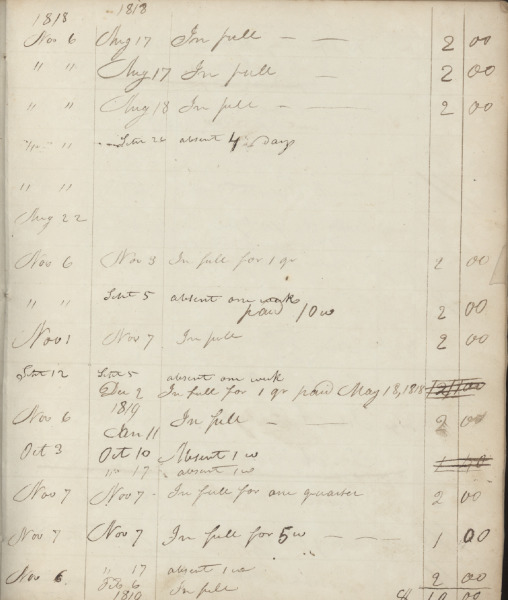 1818 1818
Nov 6 Aug 17 In full — — 2 00
" " Aug 17 In full — 2 00
" " Aug 18 In full — — 2 00
" " absent 4 days
" "
Aug 22
Nov 6 Nov 3 In full for 1 qr 2 00
" " Sept 5 absent one week
paid 10w 2 00
Nov 1 Nov 7 In full 2 00
Sept 12 Sept 5 absent one week
Dec 2 In full for 1 qr paid May 18, 1818 2 00
1819
Nov 6 Jan 11 In full — — 2 00
Oct 3 Oct 10 Absent 1 w
" 17 absent 1w
Nov 7 Nov 7 - In full for one quarter 2 00
Nov 7 Nov 7 In full for 5w — — 1 00
" 17 absent 1w
Nov 6 Feb 6 In full 2 00
1819